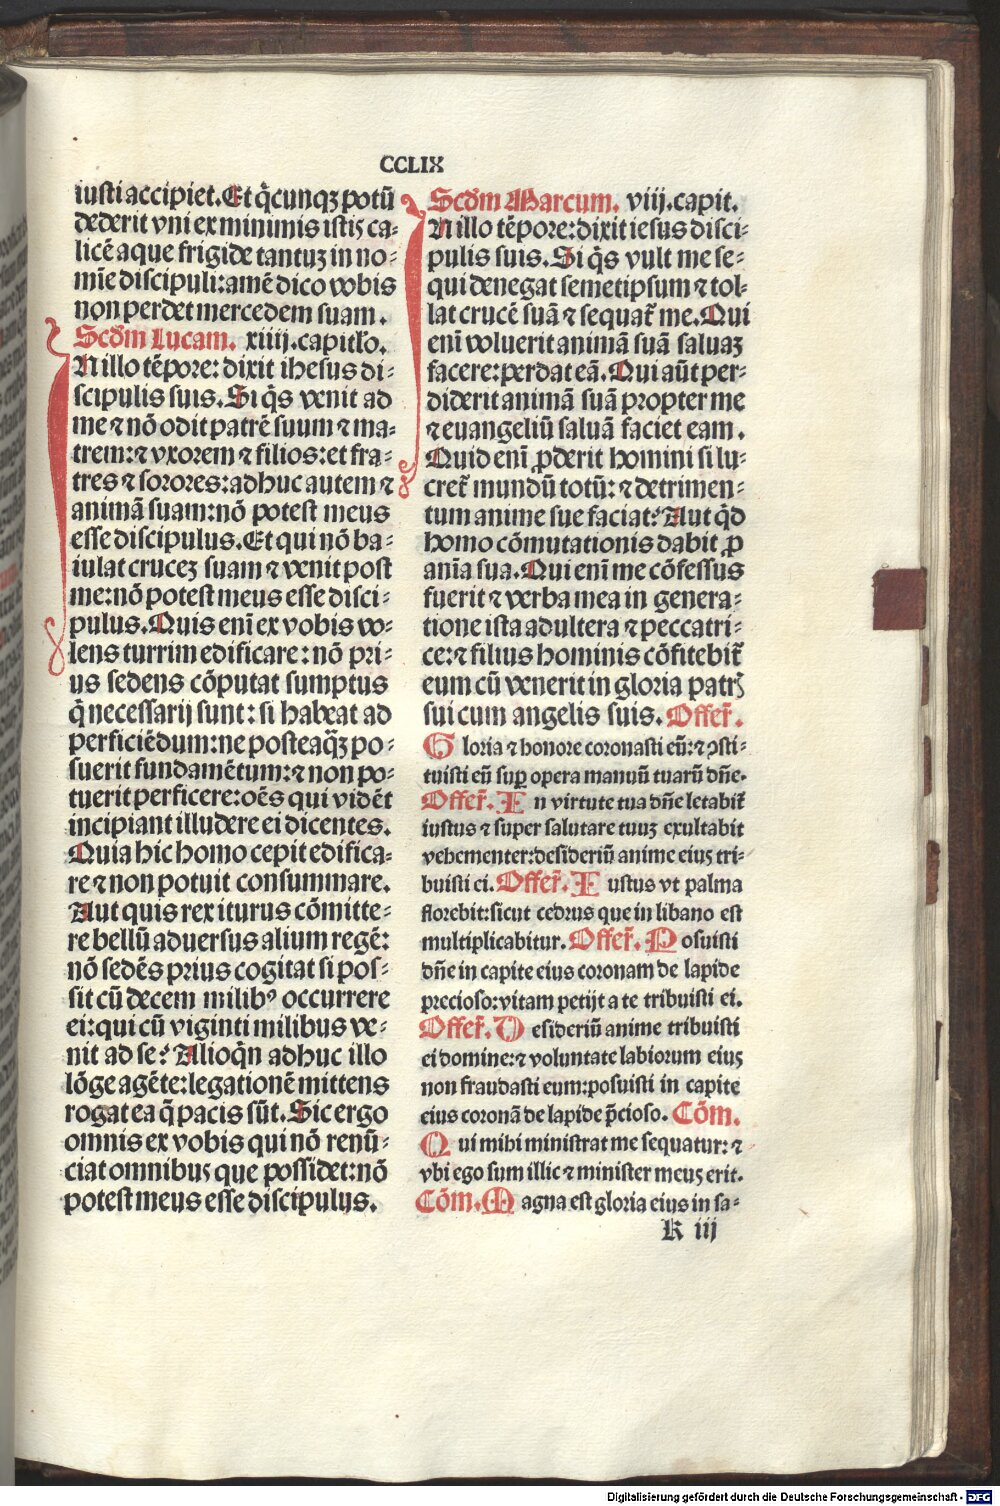 CCLIX
iusti accipiet. Et q̄cunqꝫ potū
dederit vni ex minimis istis ca⸗
licē aque frigide tantuꝫ in no⸗
mīe discipuli: amē dico vobis
non perdet mercedem suam.
Scd̄m Lucam. xiiij. capitl̄o.
IN illo tēpore: dixit ihesus di⸗
scipulis suis. Si q̄s venit ad
me ⁊ nō odit patrē suum ⁊ ma⸗
trem: ⁊ vxorem ⁊ filios: et fra⸗
tres ⁊ sorores: adhuc autem ⁊
animā suam: nō potest meus
esse discipulus. Et qui nō ba⸗
iulat cruceꝫ suam ⁊ venit post
me: nō potest meus esse disci⸗
pulus. Quis enī ex vobis vo⸗
lens turrim edificare: nō pri⸗
us sedens cōputat sumptus
q̄ necessarij sunt: si habeat ad
perficiēdum: ne posteaq̄ꝫ po⸗
suerit fundamētum: ⁊ non po⸗
tuerit perficere: oēs qui vidēt
incipiant illudere ei dicentes.
Quia hic homo cepit edifica⸗
re ⁊ non potuit consummare.
Aut quis rex iturus cōmitte⸗
re bellū aduersus alium regē:
nō sedēs prius cogitat si pos⸗
sit cū decem milibꝰ occurrere
ei: qui cū viginti milibus ve⸗
nit ad se? Alioq̄n adhuc illo
lōge agēte: legationē mittens
rogat ea q̄ pacis sūt. Sic ergo
omnis ex vobis qui nō renū⸗
ciat omnibus que possidet: nō
potest meus esse discipulus.
Scd̄m Marcum. viij. capit.
IN illo tēpore: dixit iesus disci⸗
pulis suis. Si q̄s vult me se⸗
qui deneget semetipsum ⁊ tol⸗
lat crucē suā ⁊ sequat᷑ me. Qui
enī voluerit animā suā saluaꝫ
facere: perdat eā. Qui aūt per⸗
diderit animā suā propter me
⁊ euangeliū saluā faciet eam.
Quid enī ꝓderit homini si lu⸗
cret᷑ mundū totū: ⁊ detrimen⸗
tum anime sue faciat? Aut q̄d
homo cōmutationis dabit ꝓ
anīa sua. Qui enī me cōfessus
fuerit ⁊ verba mea in genera⸗
tione ista adultera ⁊ peccatri⸗
ce: ⁊ filius hominis cōfitebit᷑
eum cū venerit in gloria patrꝭ
sui cum angelis suis. Offer᷑.
Gloria ⁊ honore coronasti eū: ⁊ ꝯsti⸗
tuisti eū suꝑ opera manuū tuarū dn̄e.
Offer᷑. In virtute tua dn̄e letabit᷑
iustus ⁊ super salutare tuuꝫ exultabit
vehementer: desideriū anime eius tri⸗
buisti ei. Offer᷑. Iustus vt palma
florebit: sicut cedrus que in libano est
multiplicabitur. Offer᷑. Posuisti
dn̄e in capite eius coronam de lapide
precioso: vitam petijt a te tribuisti ei.
Offer᷑. Desideriū anime tribuisti
ei domine: ⁊ voluntate labiorum eius
non fraudasti eum: posuisti in capite
eius coronā de lapide p̄cioso. Cōm.
Qui mihi ministrat me sequatur: ⁊
vbi ego sum illic ⁊ minister meus erit.
Cōm. Magna est gloria eius in sa⸗
K iij
Digitalisierung gefördert durch die Deutsche Forschungsgemeinschaft - DFG